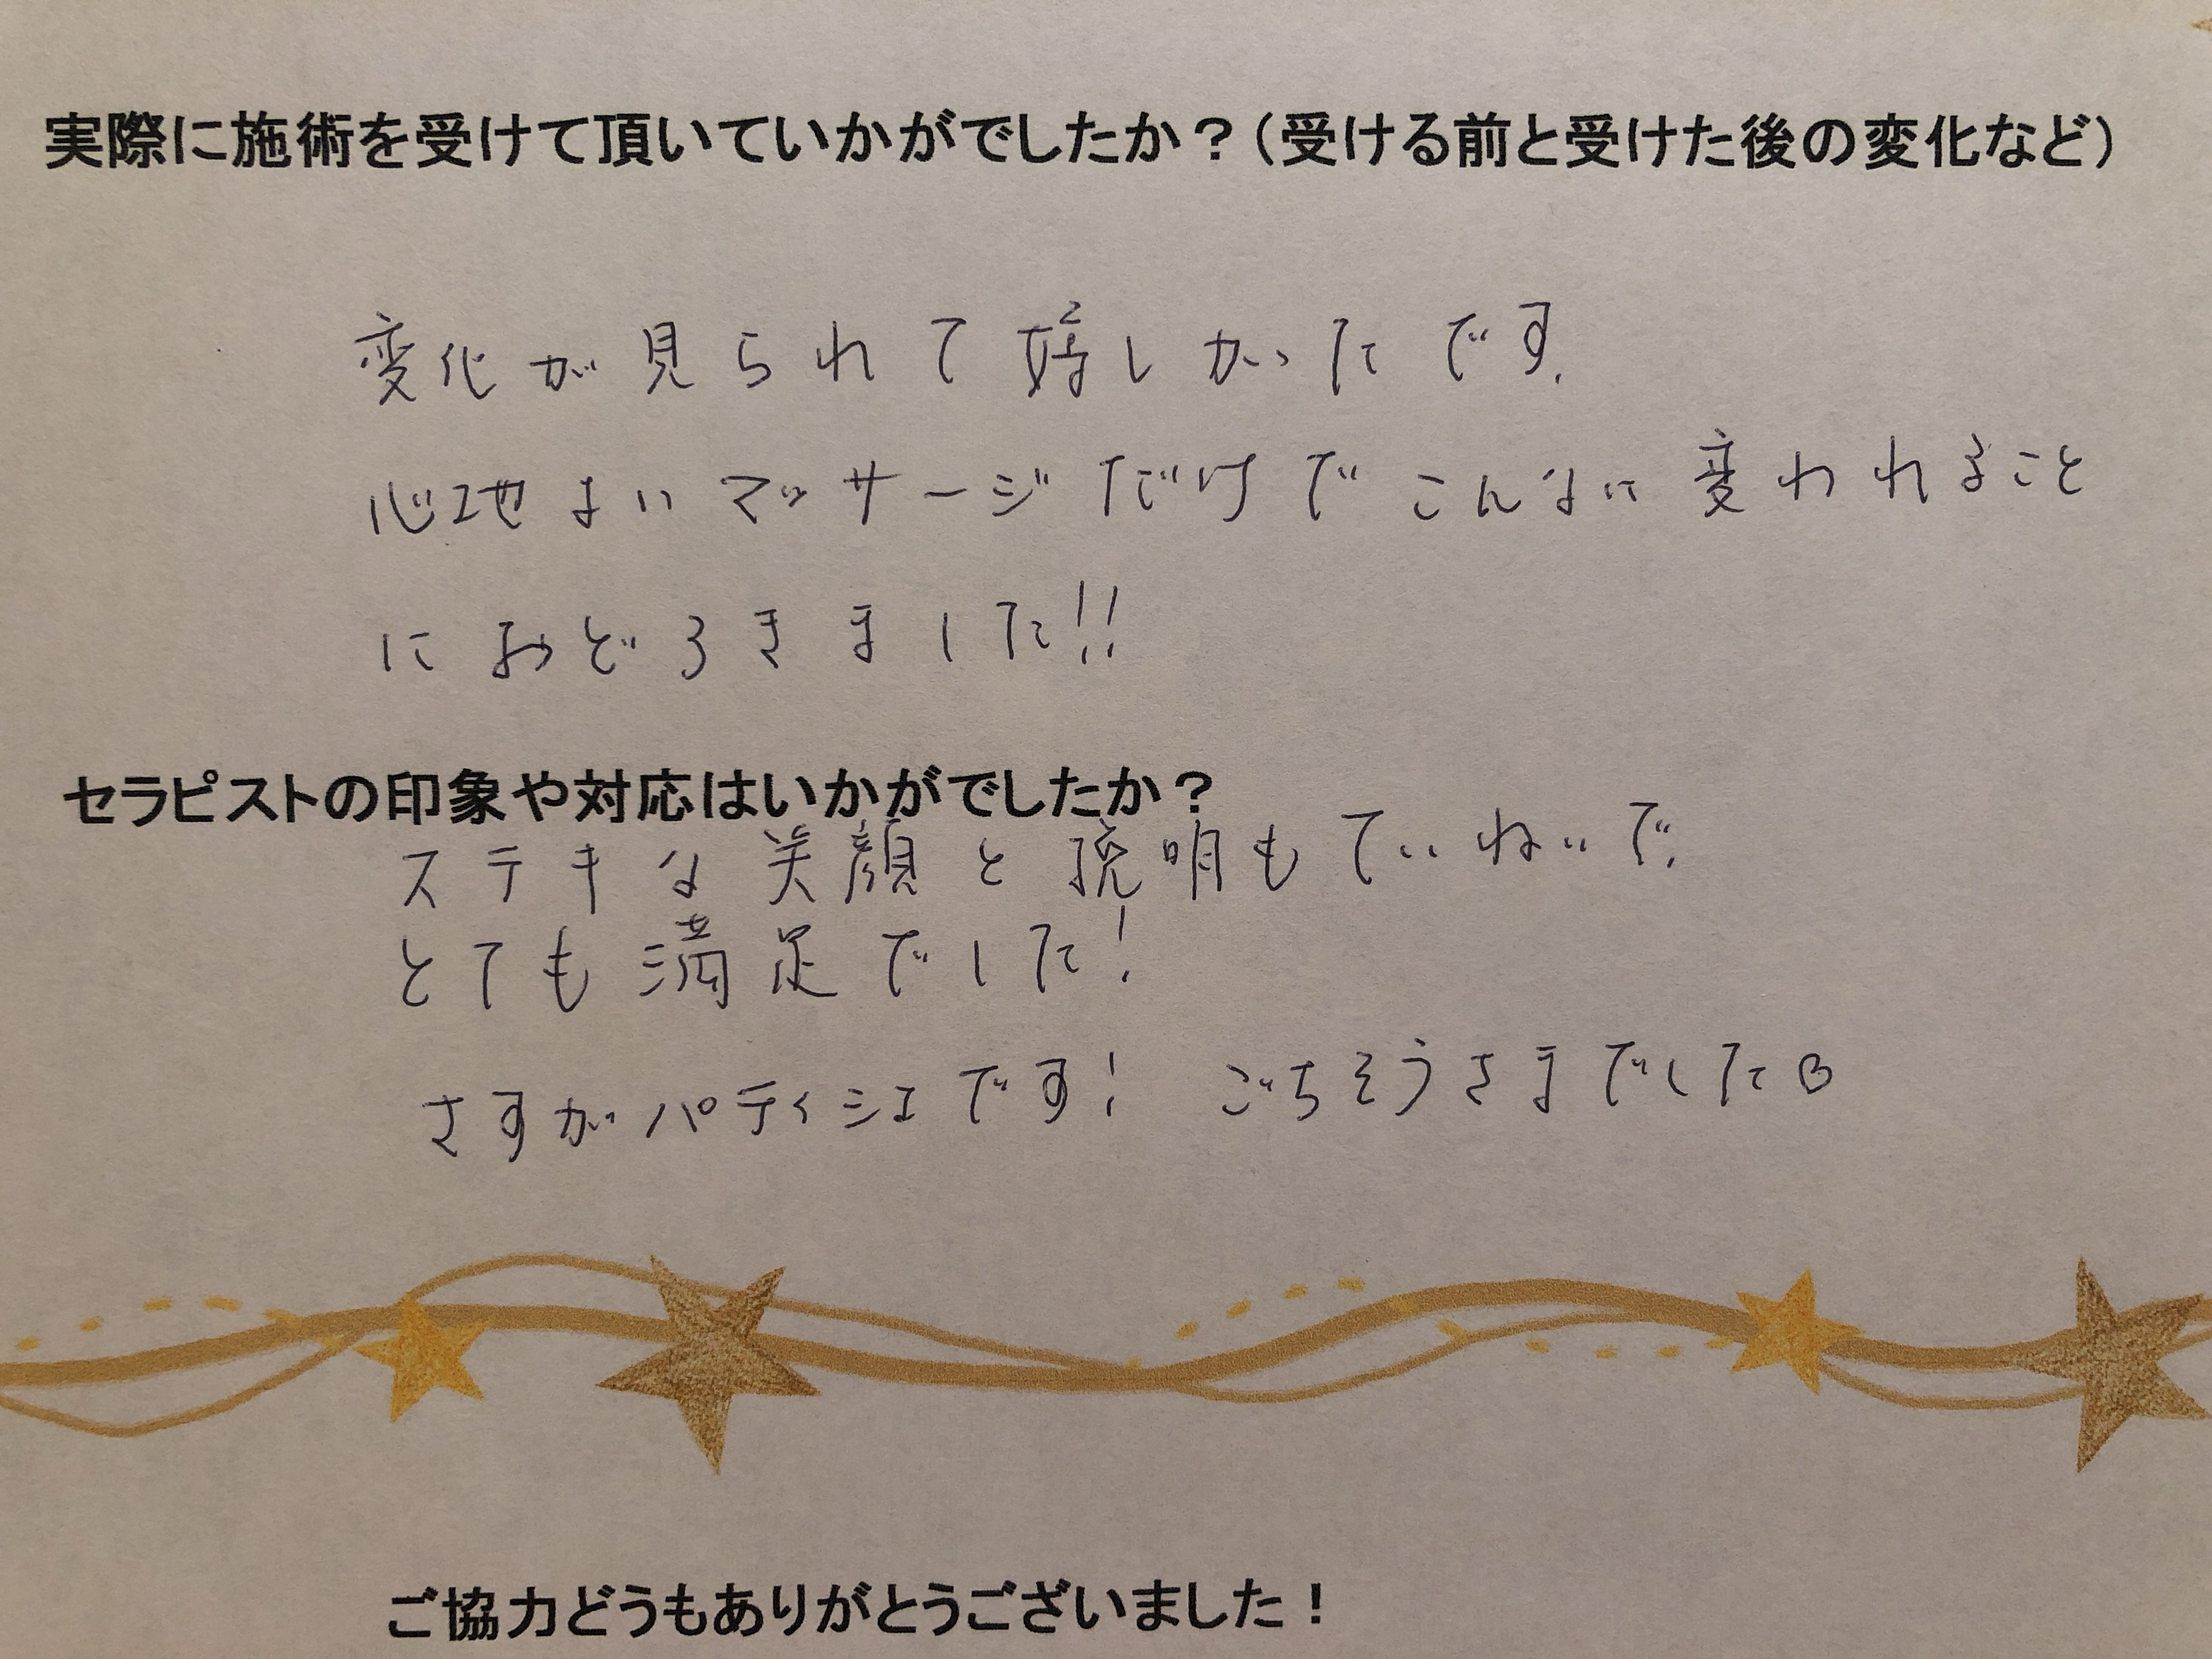 実際に施術を受けて頂いていかがでしたか？（受ける前と受けた後の変化など）
変化が見られて嬉しかったです.
心地よいマッサージだけでこんなに変われること
におどろきました!!
セラピストの印象や対応はいかがでしたか？
ステキな笑顔と説明もていねいで.
とても満足でした!
さすがパティシエです! ごちそうさまでした
ご協力どうもありがとうございました！